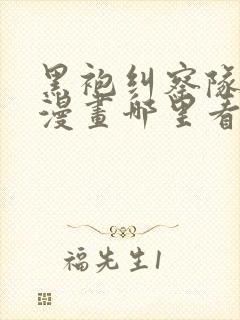 黑袍纠察隊
漫畫哪里看
福先生1